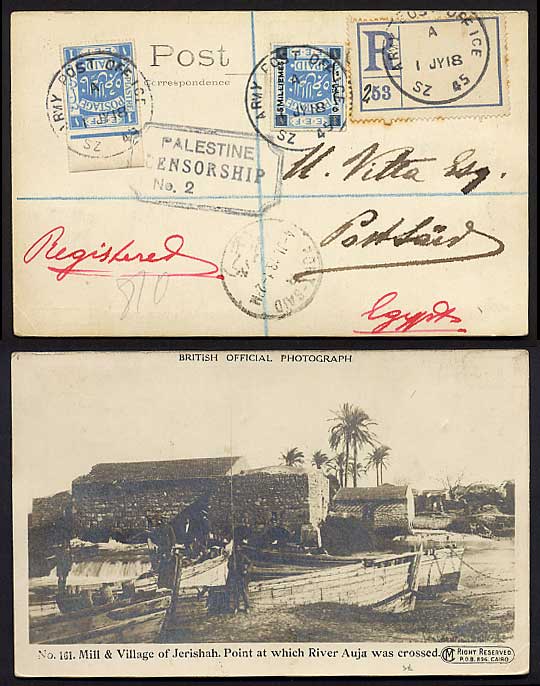 Post
Correspondence
PAID
E.E.F.
POSTAGE
ARMY POST OFFICE
SZ 45
5 MILLIEMES
PAID
E.E.F.
ARMY POST OFFICE
A
JY18
SZ 45
R
253
ARMY POST OFFICE
A
1 JY18
SZ 45
PALESTINE
CENSORSHIP
No. 2
M. Vitta Esq.
Port Säid
Registered
PORT SAID
Egypt
BRITISH OFFICIAL PHOTOGRAPH
No. 161. Mill & Village of Jerishah. Point at which River Auja was crossed.
RIGHT RESERVED
P.O.B. 896. CAIRO